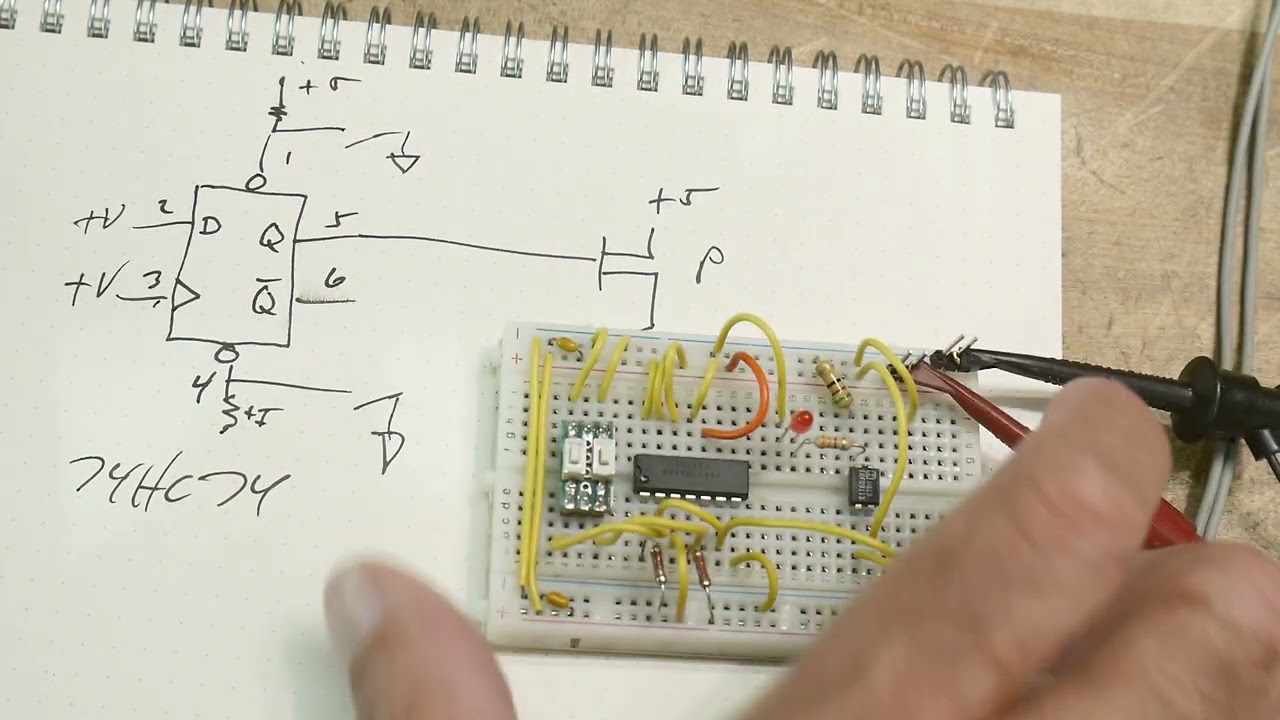 +5
1
+V 2 D Q 5
+5
+V 3 Q̅ 6
P
4
+5
74HC74